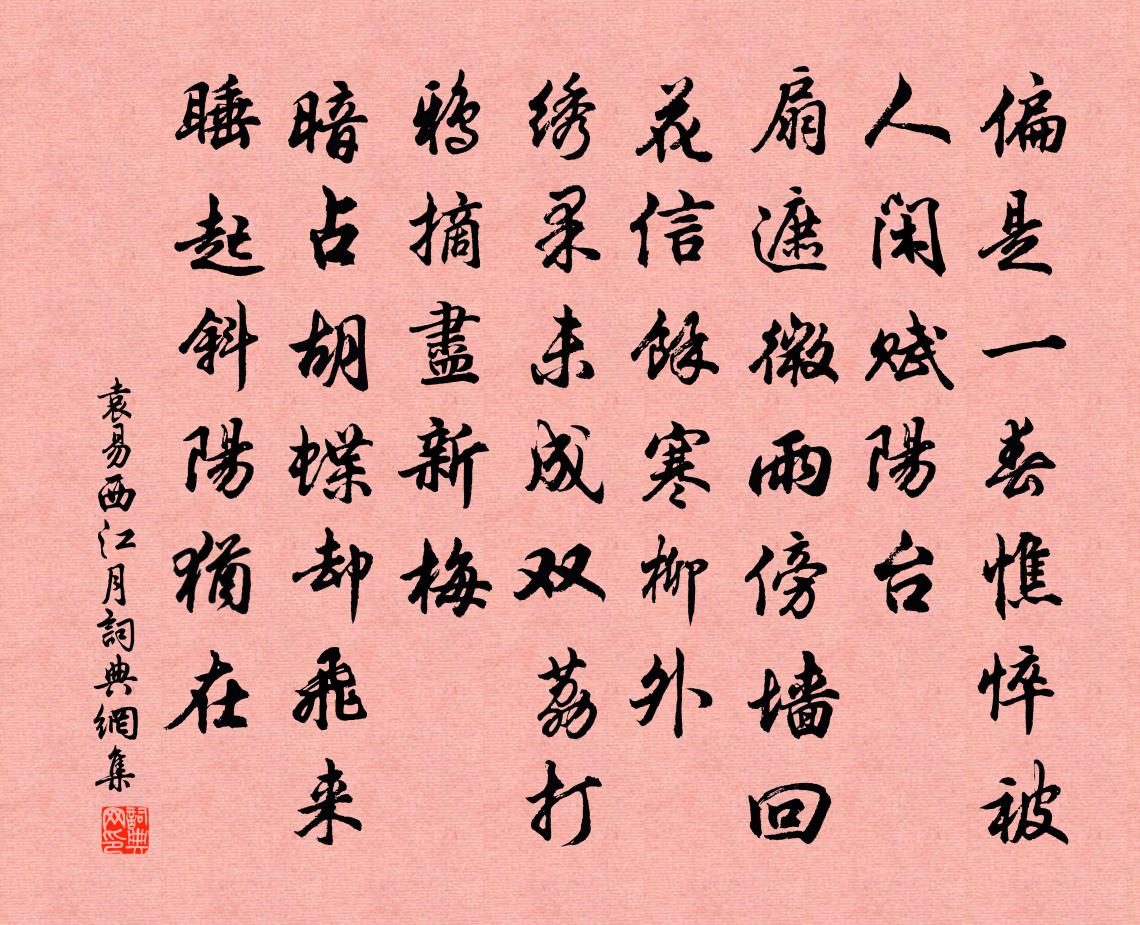 偏是一春憔悴被
人闲赋陽台
扇遮微雨傍墙回
花信餘寒柳外
绣朵未成双荔打
鸦摘盡新梅
暗占胡蝶却飛来
睡起斜陽猶在
袁易西江月詞典網集
詞典网印